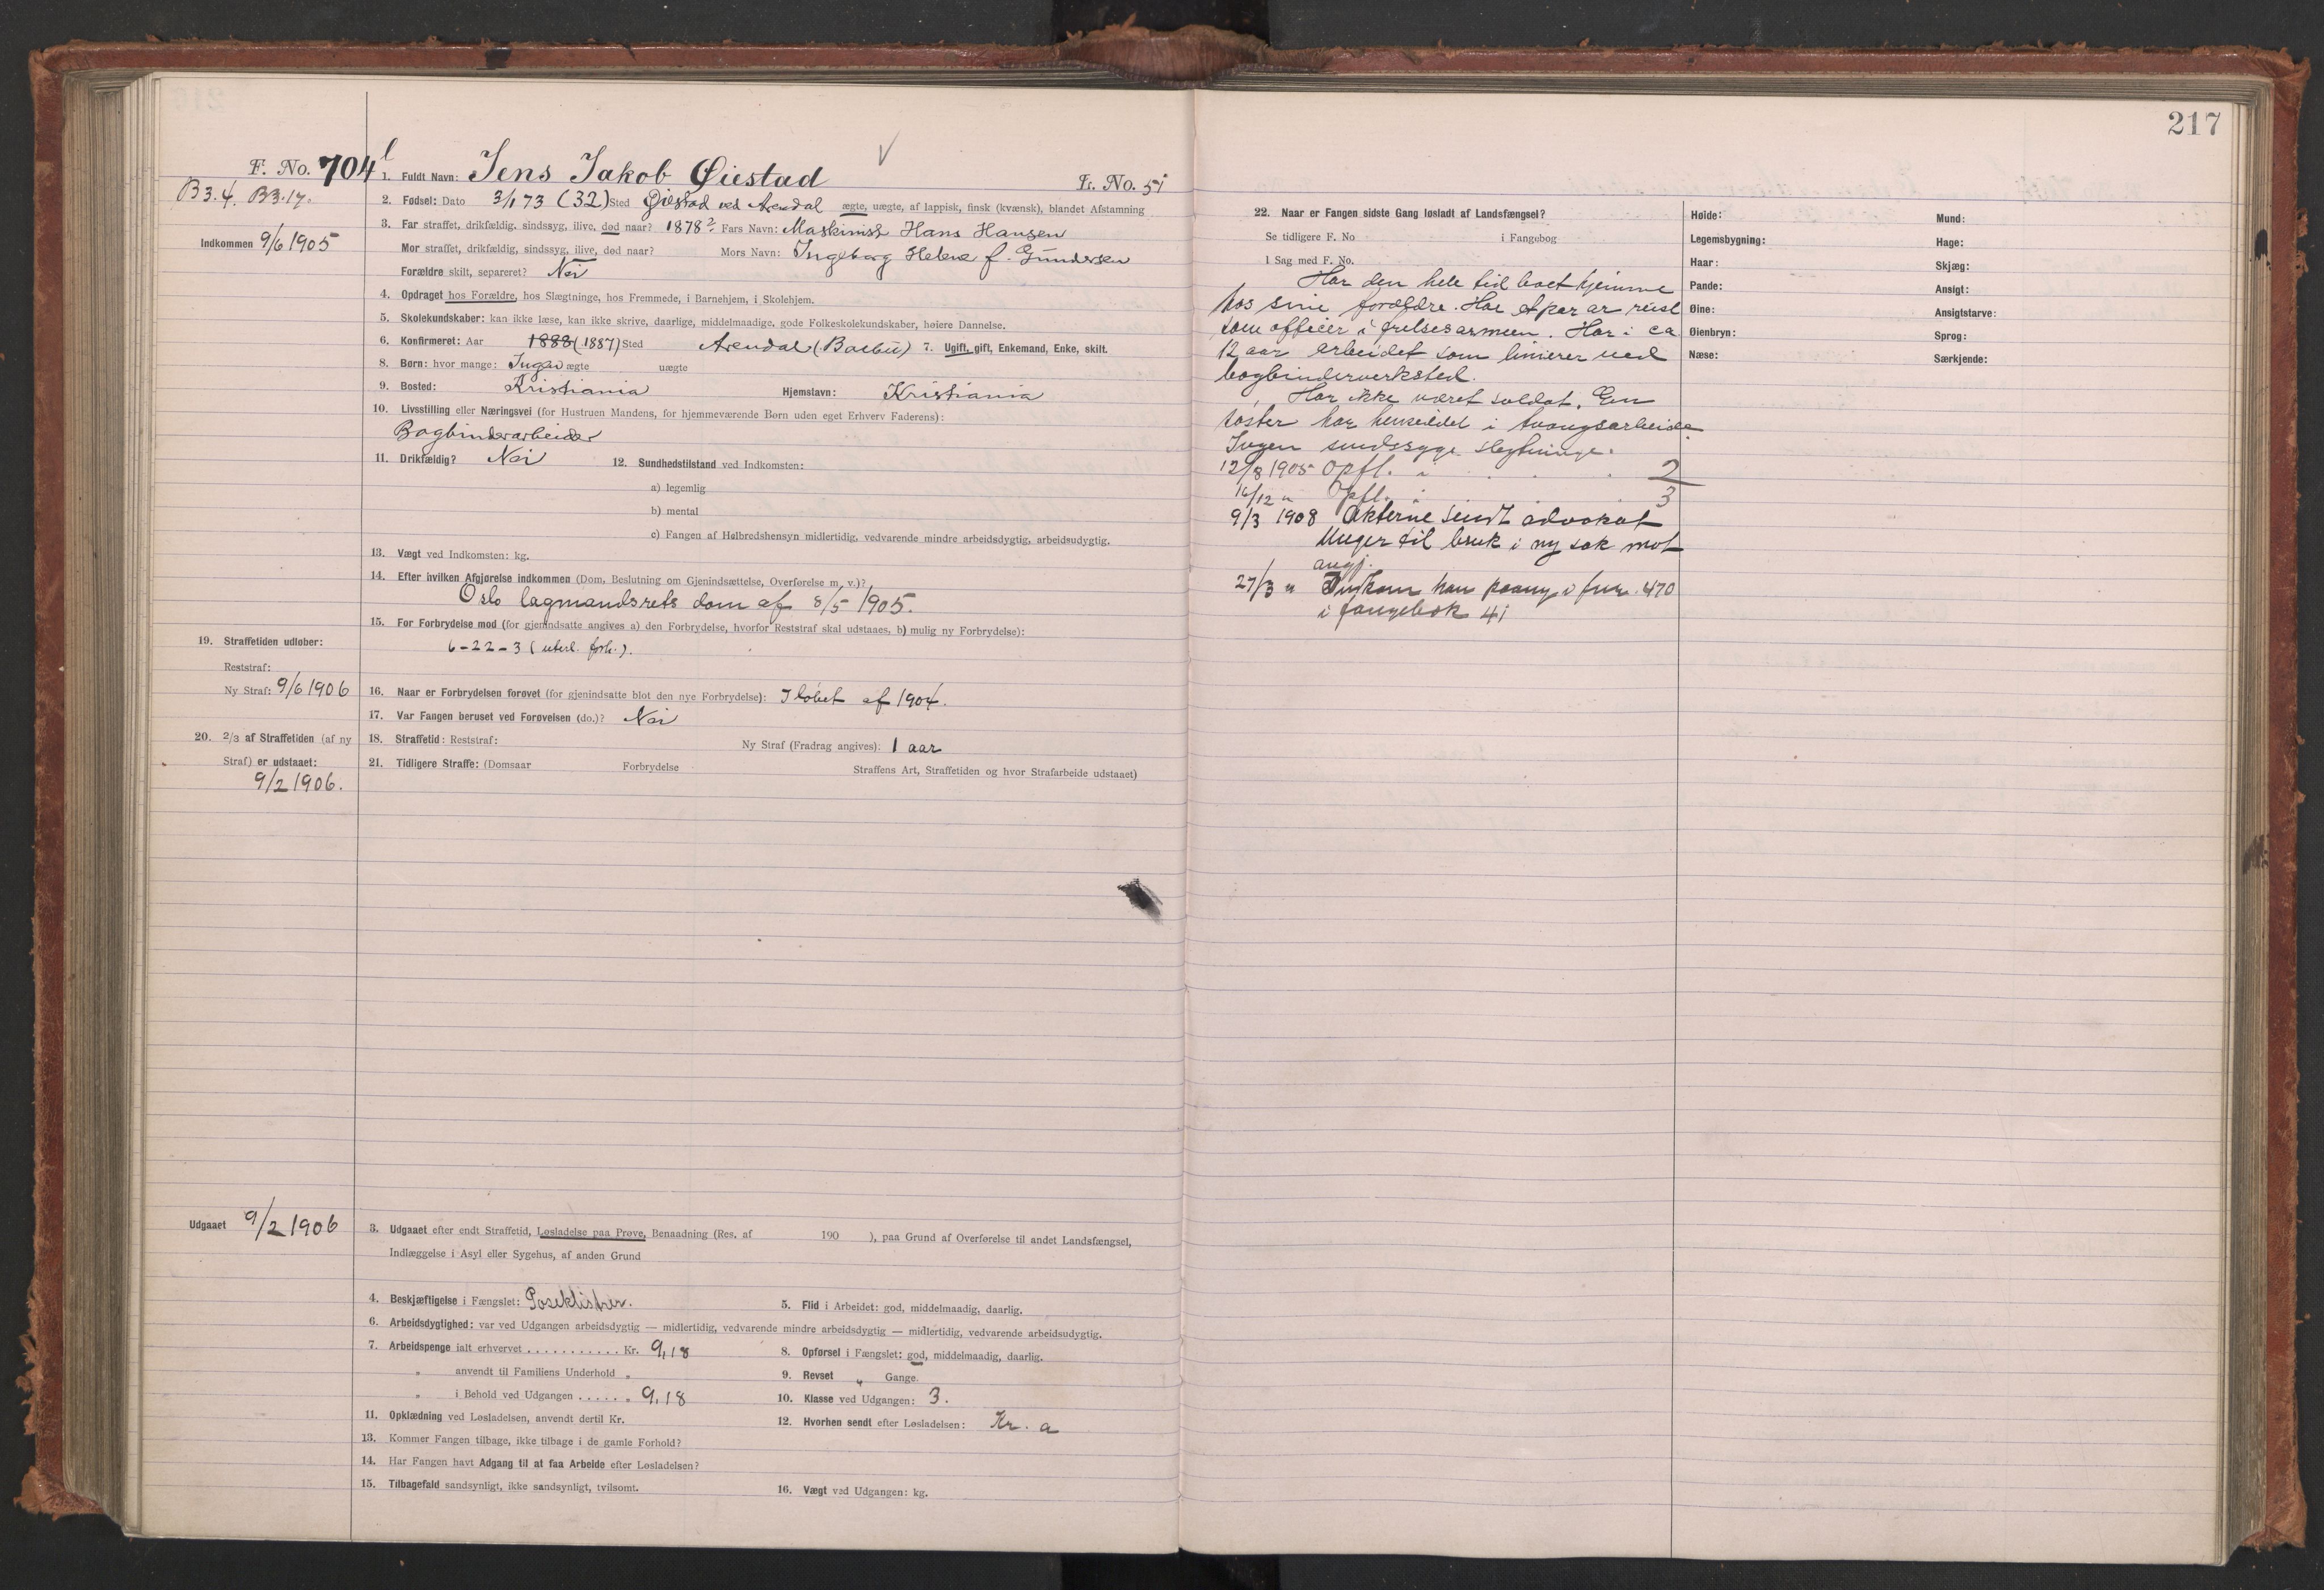 217
F. No. 704 l
1. Fuldt Navn: Jens Jakob Øiestad Fr. No. 5i
B3.4. B3.17.
2. Fødsel: Dato 3/1 73 (32) Sted Øiestad ved Arendal ægte, uægte, af lappisk, finsk (kvænsk), blandet Afstamning
Indkommen 9/6 1905
3. Far straffet, drikfældig, sindssyg, ilive, død naar? 1878? Fars Navn: Maskinist Hans Hansen
Mor straffet, drikfældig, sindssyg, ilive, død naar? Mors Navn: Ingeborg Helene f. Gundersen
Forældre skilt, separeret? Nei
4. Opdraget hos Forældre, hos Slægtninge, hos Fremmede, i Barnehjem, i Skolehjem.
5. Skolekundskaber: kan ikke læse, kan ikke skrive, daarlige, middelmaadige, gode Folkeskolekundskaber, høiere Dannelse.
6. Konfirmeret: Aar 1888 (1887) Sted Arendal (Barbu) 7. Ugift, gift, Enkemand, Enke, skilt.
8. Børn: hvor mange: Ingen ægte uægte
9. Bosted: Kristiania Hjemstavn: Kristiania
10. Livsstilling eller Næringsvei (for Hustruen Mandens, for hjemmeværende Børn uden eget Erhverv Faderens):
Bogbinderarbeider
11. Drikfældig? Nei 12. Sundhedstilstand ved Indkomsten:
a) legemlig
b) mental
c) Fangen af Helbredshensyn midlertidig, vedvarende mindre arbeidsdygtig, arbeidsudygtig.
13. Vægt ved Indkomsten: kg.
14. Efter hvilken Afgjørelse indkommen (Dom, Beslutning om Gjenindsættelse, Overførelse m. v.)?
Oslo lagmandsrets dom af 8/5 1905.
15. For Forbrydelse mod (for gjenindsatte angives a) den Forbrydelse, hvorfor Reststraf skal udstaaes, b) mulig ny Forbrydelse):
6-22-3 (uterl. forh.).
19. Straffetiden udløber:
Reststraf:
Ny Straf: 9/6 1906
16. Naar er Forbrydelsen forøvet (for gjenindsatte blot den nye Forbrydelse): I løbet af 1904.
17. Var Fangen beruset ved Forøvelsen (do.)? Nei
20. 2/3 af Straffetiden (af ny
Straf) er udstaaet:
9/2 1906.
18. Straffetid: Reststraf: Ny Straf (Fradrag angives): 1 aar
21. Tidligere Straffe: (Domsaar Forbrydelse Straffens Art, Straffetiden og hvor Strafarbeide udstaaet)
Udgaaet 9/2 1906
3. Udgaaet efter endt Straffetid, Løsladelse paa Prøve, Benaadning (Res. af 190 ), paa Grund af Overførelse til andet Landsfængsel,
Indlæggelse i Asyl eller Sygehus, af anden Grund
4. Beskjæftigelse i Fængslet: Poseklistrer. 5. Flid i Arbeidet: god, middelmaadig, daarlig.
6. Arbeidsdygtighed: var ved Udgangen arbeidsdygtig — midlertidig, vedvarende mindre arbeidsdygtig — midlertidig, vedvarende arbeidsudygtig.
7. Arbeidspenge ialt erhvervet ........... Kr. 9,18 8. Opførsel i Fængslet: god, middelmaadig, daarlig.
" anvendt til Familiens Underhold " 9. Revset " Gange.
" i Behold ved Udgangen ...... " 9,18 10. Klasse ved Udgangen: 3.
11. Opklædning ved Løsladelsen, anvendt dertil Kr. 12. Hvorhen sendt efter Løsladelsen: Kr. a
13. Kommer Fangen tilbage, ikke tilbage i de gamle Forhold?
14. Har Fangen havt Adgang til at faa Arbeide efter Løsladelsen?
15. Tilbagefald sandsynligt, ikke sandsynligt, tvilsomt. 16. Vægt ved Udgangen: kg.
22. Naar er Fangen sidste Gang løsladt af Landsfængsel?
Se tidligere F. No i Fangebog
I Sag med F. No.
Har den hele tid boet hjemme
hos sine forældre. Har et par ar reist
som officer i frelsesarmeen. Har i ca
12 aar arbeidet som linierer ved
bogbinderverksted.
Har ikke været soldat. En
søster har hensiddet i tvangsarbeide.
Ingen sindssyge slegtninge.
12/8 1905 Opfl. i 2
16/12 " Opfl. i 3
9/3 1908 Akterne sendt advokat
til bruk i ny sak mot
angj.
27/3 " Indkom han paany i fnr. 470
i fangebok 4i
Høide:
Legemsbygning:
Haar:
Pande:
Øine:
Øienbryn:
Næse:
Mund:
Hage:
Skjæg:
Ansigt:
Ansigtstarve:
Sprog:
Særkjende: